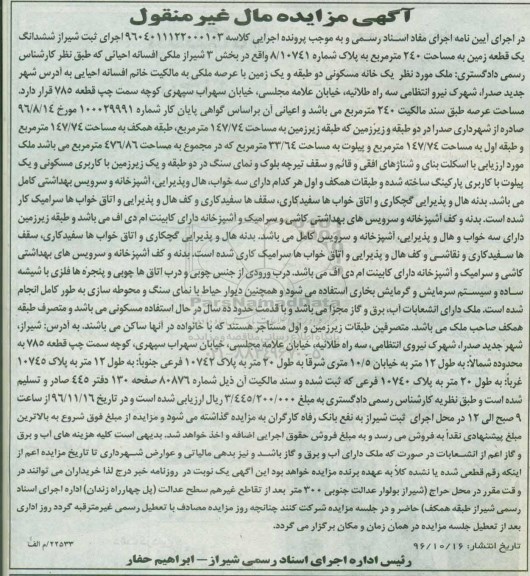 آگهی مزایده مال غیر منقول
در اجرای آیین نامه اجرای مفاد اسناد رسمی و به موجب پرونده اجرایی کلاسه ۹۶۰۴۰۱۱۱۲۲۰۰۰۱۰۳ اجرای ثبت شیراز ششدانگ
یک قطعه زمین به مساحت ۲۴۰ مترمربع به پلاک شماره ۸/۱۰۷۴۱ واقع در بخش ۳ شیراز ملکی افسانه احیائی که طبق نظر کارشناس
رسمی دادگستری: ملک مورد نظر یک خانه مسکونی دو طبقه و یک زمین با عرصه ملکی به مالکیت خانم افسانه احیایی به آدرس شهر
جدید صدرا، شهرک نیرو انتظامی سه راه طلائیه، خیابان علامه مجلسی، خیابان سهراب سپهری کوچه سمت چپ قطعه ۷۸۵ قرار دارد.
مساحت عرصه طبق سند مالکیت ۲۴۰ مترمربع می باشد و اعیانی آن براساس گواهی پایان کار شماره ۱۰۰۰۰۲۹۹۹۱ مورخ ۹۶/۸/۱۴
صادره از شهرداری صدرا در دو طبقه و زیرزمین که طبقه زیرزمین به مساحت ۱۴۷/۷۴ مترمربع، طبقه همکف به مساحت ۱۴۷/۷۴ مترمربع
و طبقه اول به مساحت ۱۴۷/۷۴ مترمربع و پیلوت به مساحت ۳۳/۶۴ مترمربع که در مجموع به مساحت ۴۷۶/۸۶ مترمربع می باشد ملک
مورد ارزیابی با اسکلت بنای و شناژهای افقی و قائم و سقف تیرچه بلوک و نمای سنگ در دو طبقه و یک زیرزمین با کاربری مسکونی و یک
پیلوت با کاربری پارکینگ ساخته شده و طبقات همکف و اول هر کدام دارای سه خواب، هال وپذیرایی، آشپزخانه و سرویس بهداشتی کامل
می باشد. بدنه هال و پذیرایی گچکاری و اتاق خواب ها سفیدکاری، سقف ها سفیدکاری و کف هال و پذیرایی و اتاق خواب ها سرامیک کار
شده است. بدنه و کف آشپزخانه و سرویس های بهداشتی کاشی و سرامیک و آشپزخانه دارای کابینت ام دی اف می باشد و طبقه زیرزمین
دارای سه خواب و هال و پذیرایی، آشپزخانه و سرویس کامل می باشد. بدنه هال و پذیرایی گچکاری و اتاق خواب ها سفیدکاری، سقف
ها سفیدکاری و نقاشی و کف هال و پذیرایی و اتاق خواب ها سرامیک کاری شده است. بدنه و کف آشپزخانه و سرویس های بهداشتی
کاشی و سرامیک و آشپزخانه دارای کابینت ام دی اف می باشد. درب ورودی از جنس چوبی و درب اتاق ها چوبی و پنجره ها فلزی با شیشه
ساده و سیستم سرمایش و گرمایش بخاری استفاده می شود و همچنین دیوار حیاط با نمای سنگ و محوطه سازی به طور کامل انجام
شده است. ملک دارای انشعابات آب، برق و گاز مجزا می باشد و با قدمت حدود ده سال در حال استفاده مسکونی می باشد و متصرف طبقه
همکف صاحب ملک می باشد. متصرفین طبقات زیرزمین و اول مستأجر هستند که با خانواده در آنها ساکن می باشند. به آدرس: شیراز،
شهر جدید صدرا، شهرک نیروی انتظامی، سه راه طلائیه، خیابان علامه مجلسی، خیابان سهراب سپهری، کوچه سمت چپ قطعه ۷۸۵ به
محدوده شمالاً: به طول ۱۲ متر به خیابان ۱۰/۵ متری شرقاً به طول ۲۰ متر به پلاک ۱۰۷۴۲ فرعی جنوباً: به طول ۱۲ متر به پلاک ۱۰۷۴۵
غرباً: به طول ۲۰ متر به پلاک ۱۰۷۴۰ فرعی که ثبت شده و سند مالکیت آن ذیل شماره ۸۰۸۷۶ صفحه ۱۳۰ دفتر ۴۴۵ صادر و تسلیم
شده است و طبق نظریه کارشناس رسمی دادگستری به مبلغ ۳/۴۴۵/۲۰۰/۰۰۰ ریال ارزیابی شده است و در تاریخ ۹۶/۱۱/۱۶ از ساعت
۹ صبح الی ۱۲ در محل اجرای ثبت شیراز به نفع بانک رفاه کارگران به مزایده گذاشته می شود و مزایده از مبلغ فوق شروع به بالاترین
مبلغ پیشنهادی نقداً به فروش می رسد و به مبلغ فروش حقوق اجرایی اضافه و اخذ خواهد شد. بدیهی است کلیه هزینه های آب و برق
و گاز اعم از انشعابات در صورت که ملک دارای آب و برق و گاز باشد و نیز بدهی مالیاتی و عوارض شهرداری تا تاریخ مزایده اعم از
اینکه رقم قطعی شده یا نشده کلاً به عهده برنده مزایده خواهد بود این آگهی یک نوبت در روزنامه خبر درج لذا خریداران می توانند در
وقت مقرر در محل حراج (شیراز بولوار عدالت جنوبی ۳۰۰ متر بعد از تقاطع غیرهم سطح عدالت (پل چهارراه زندان) اداره اجرای اسناد
رسمی شیراز طبقه همکف) حاضر و در جلسه مزایده شرکت کنند چنانچه روز مزایده مصادف با تعطیل رسمی غیرمترقبه گردد روز اداری
بعد از تعطیل جلسه مزایده در همان زمان و مکان برگزار می گردد.
تاریخ انتشار: ۹۶/۱۰/۱۶
۲۲۵۳۳/م الف
رئیس اداره اجرای اسناد رسمی شیراز – ابراهیم حفار